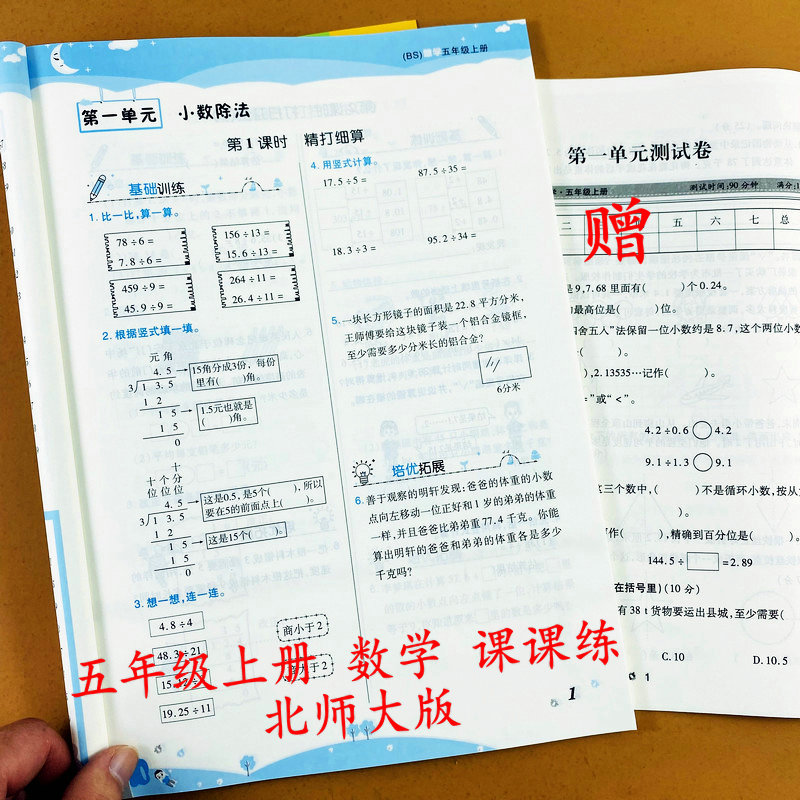 (BS)数学五年级上册
第一单元 小数除法
第1课时 精打细算
基础训练
1. 比一比,算一算。
78÷6=
7.8÷6=
156÷13=
15.6÷13=
459÷9=
45.9÷9=
264÷11=
26.4÷11=
2. 根据竖式填一填。
元 角
4. 5
3 1 3. 5
1 2
1 5
1 5
0
15角分成3份,每份
里有( )角。
1.5元也就是
( )角。
十
十 个 分
位 位 位
4. 5
3 1 3. 5
1 2
1 5
1 5
0
这是0.5,是5个( ),所以
要在5的前面点上( )。
这是15个( )。
3. 想一想,连一连。
4.8÷4
48.3÷21
19.25÷11
商小于2
4. 用竖式计算。
17.5÷5=
87.5÷35=
18.3÷3=
95.2÷34=
5. 一块长方形镜子的面积是22.8平方分米,
王师傅要给这块镜子装一个铝合金镜框,
至少需要多少分米长的铝合金?
6分米
培优拓展
6. 善于观察的明轩发现:爸爸的体重的小数
点向左移动一位正好和1岁的弟弟的体重
一样,并且爸爸比弟弟重77.4千克。你能
算出明轩的爸爸和弟弟的体重各是多少
千克吗?
1
第一单元测试卷
学·五年级上册
测试时间:90分钟
满分:1
二
五 六 七 总
赠
是9,7.68里面有( )个0.24。
的最高位是( )位。
四舍五入”法保留一位小数约是8.7,这个两位小数
( )。
),2.13535…记作( )。
=”或“<”。
4.2÷0.6 4.2
9.1÷1.3 9.1
这三个数中,( )不是循环小数,按从大
写作( ),精确到百分位是( )。
144.5÷ =2.89
在括号里)(10分)
有38 t货物要运出县城,至少需要(
C. 10
D. 10.5
1
五年级上册 数学 课课练
北师大版